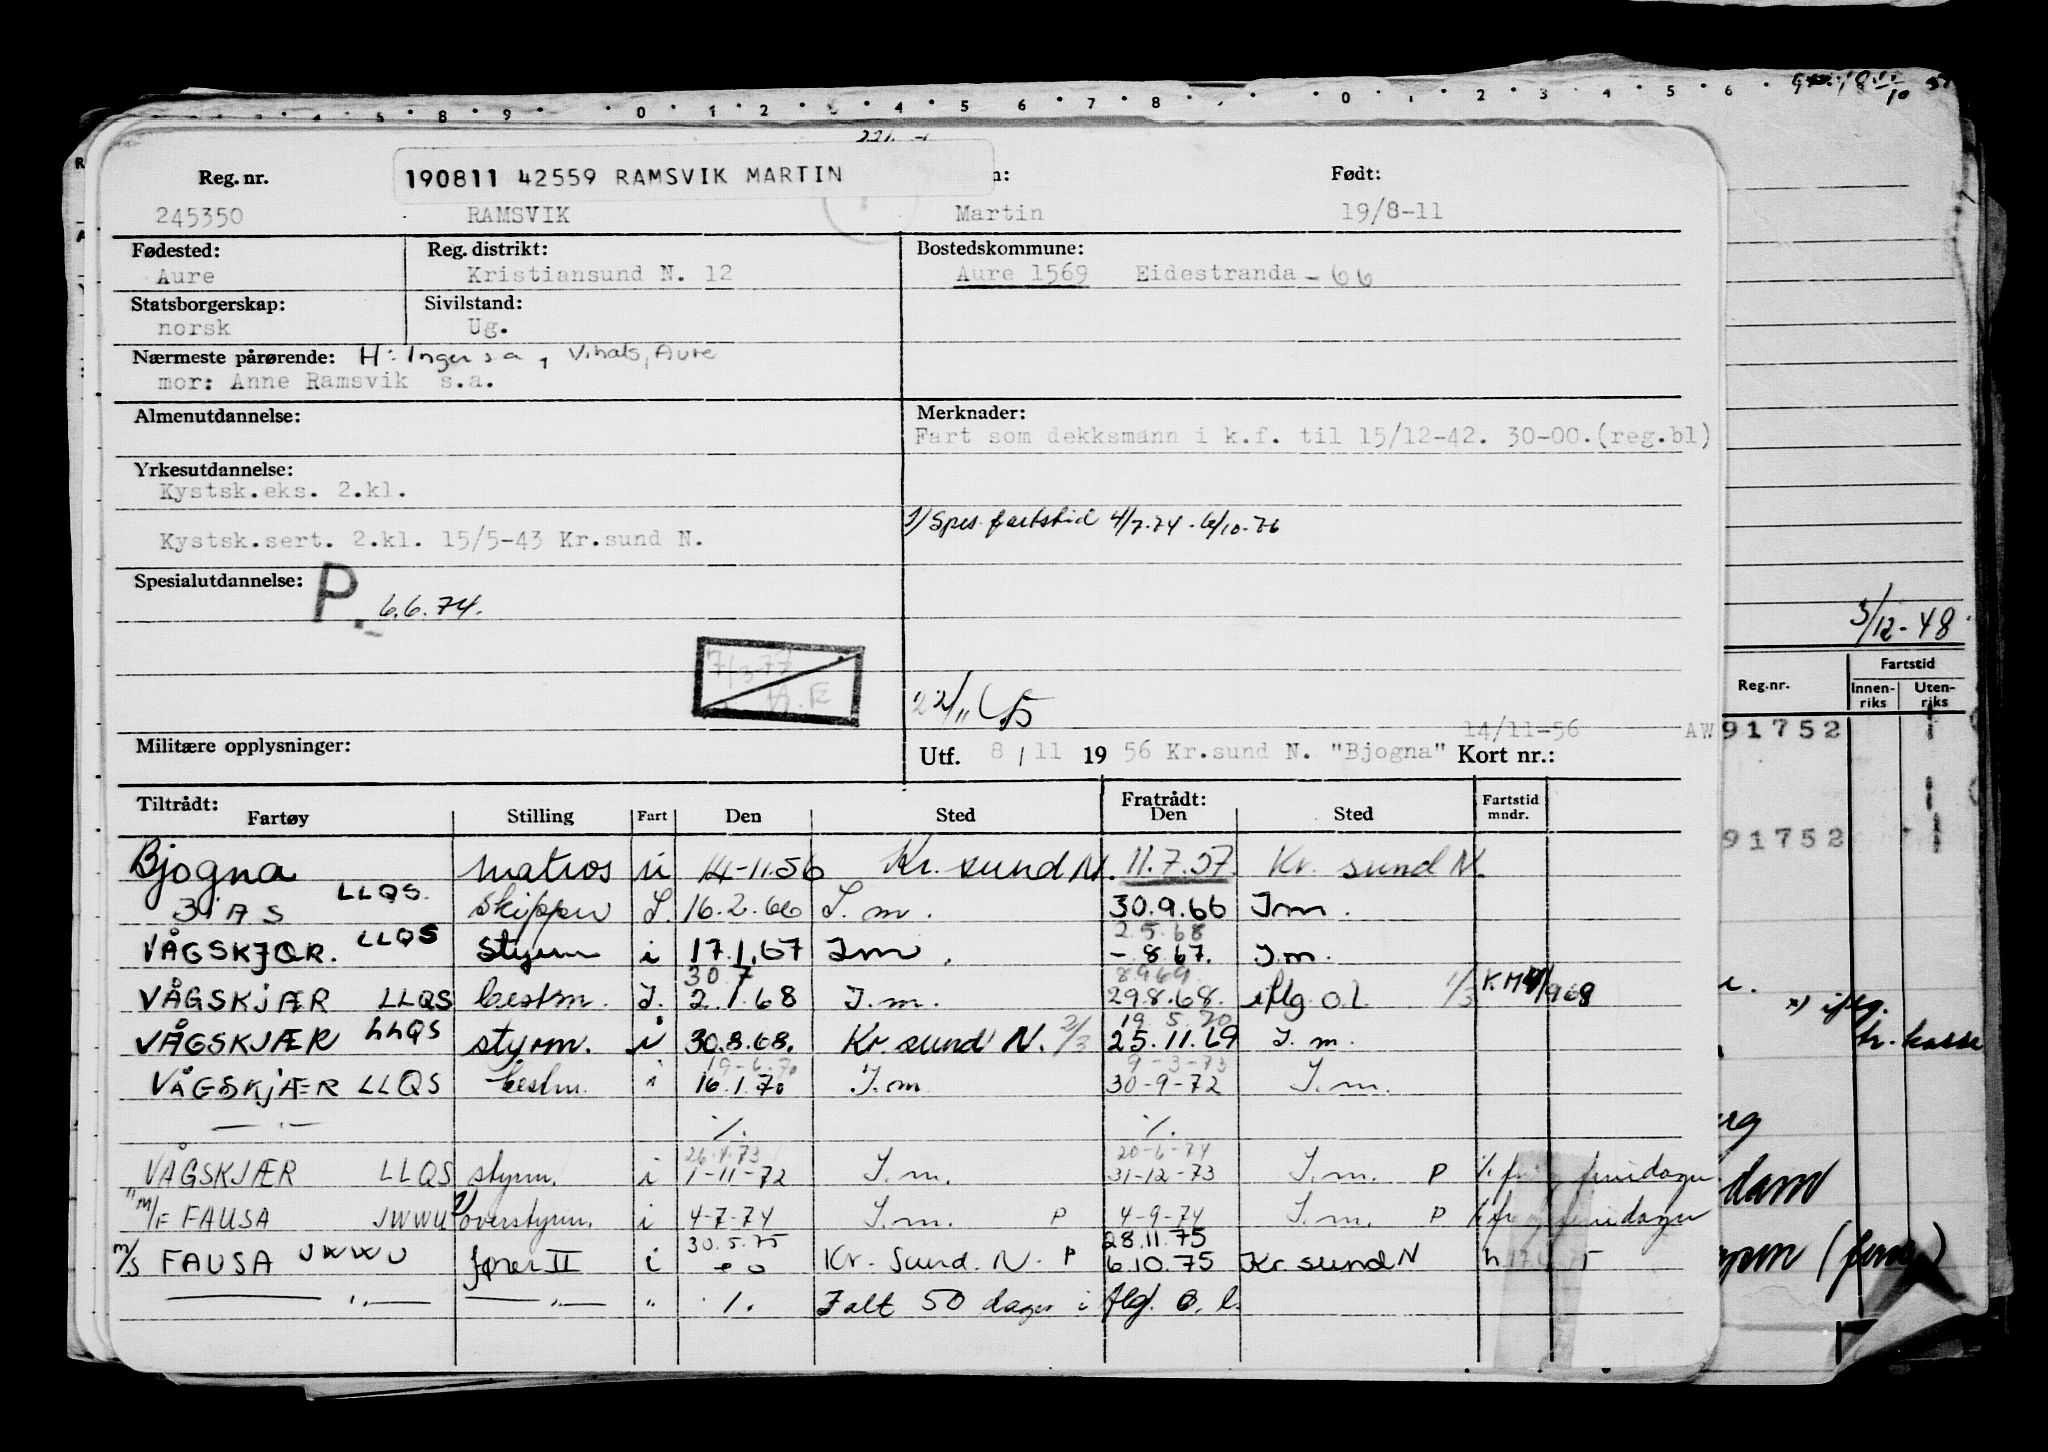 Reg. nr. 190811 42559 RAMSVIK MARTIN n: Født:
245350 RAMSVIK Martin 19/8-11
Fødested: Reg. distrikt: Bostedskommune:
Aure Kristiansund N. 12 Aure 1569 Eidestranda - 66
Statsborgerskap: Sivilstand:
norsk Ug.
Nærmeste pårørende: H: Inger s.a, Vihals, Aure
mor: Anne Ramsvik s.a.
Almenutdannelse: Merknader:
Fart som dekksmann i k.f. til 15/12-42. 30-00.(reg.bl)
Yrkesutdannelse:
Kystsk.eks. 2.kl.
1/ Spes. fartstid 4/7-74 - 6/10-76
Kystsk.sert. 2.kl. 15/5-43 Kr.sund N.
Spesialutdannelse: P. 6.6.74.
7/3-77
22/11 65
14/11-56
Militære opplysninger: Utf. 8 / 11 19 56 Kr.sund N. "Bjogna" Kort nr.:
Tiltrådt: Fratrådt: Fartstid mndr.
Fartøy Stilling Fart Den Sted Den Sted
Bjogna matros u 14-11.56 Kr. sund N. 11.7.57. Kr. sund N.
BIAS LLQS. Skipper I. 16.2.66 I.m. 30.9.66 I.m.
2.5.68
VÅGSKJÆR. LLQS styrm i 17.1.67 I.m. - 8.67. I.m.
30 7 8.9.69.
VÅGSKJÆR LLQS bestm. I. 2.1.68 I.m. 29.8.68. iflg. o.l. 1/3 KM 9/1968
19.5.70
VÅGSKJÆR LLQS styrm. i 30.8.68. Kr. sund N. 2/3 25.11.69 I.m.
19-6.70 9-3-73
VÅGSKJÆR LLQS bestm. i 16.1.70 I.m 30-9-72 I.m.
— " — ./. ./.
26.4.73 20-6-74
VÅGSKJÆR LLQS styrm. i 1-11-72 I.m. 31-12-73 I.m. P fridager
M/F FAUSA JWWU 1/ overstyrm. i 4-7-74 I.m. P 4-9-74 I.m. P fridager
30.5.75 28.11.75
M/S FAUSA JWWU fører II i Kr. Sund. N. P 6.10.75 Kr sund N
— " — — " — " ./. I alt 50 dager i flg. o.l.
5/12-48
Reg.nr. Fartstid
Innenriks Utenriks
AW91752
91752